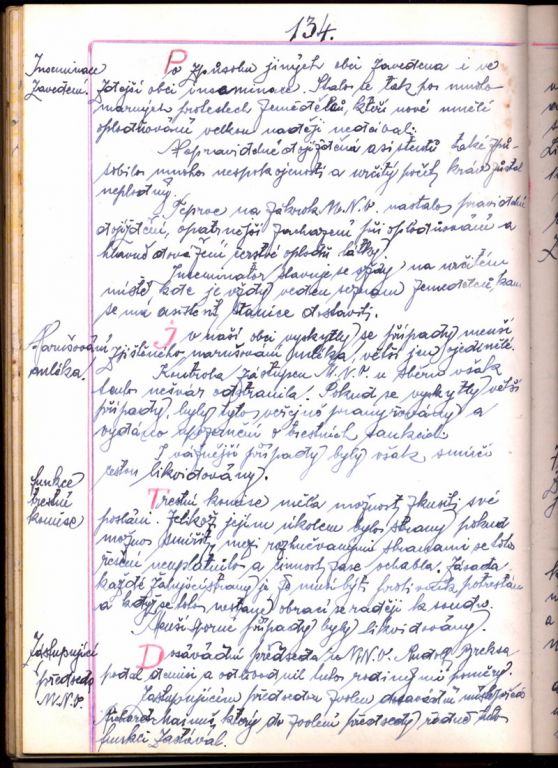 134.
Inseminace
zavedení.
Po způsobu jiných obcí zavedena i ve
zdejší obci inseminace. Stalo se tak po mnoha
marných protestech zemědělců, kteří nové umělé
oplodňování velkou naději nedávali.
Nepravidelné dojíždění asistentů také způ-
sobilo mnoho nespokojenosti a určitý počet krav zůstal
neplodný.
Teprve na zákrok M.N.V. nastalo pravidelné
dojíždění, opatrnější zacházení při oplodňování a
hlavně dovážení čerstvé oplodň. látky.
Inseminátor stavuje se vždy na určitém
místě kde je vždy veden seznam zemědělců, kam
se má asistent stanice dostavit.
Narušování
mléka.
I v naší obci vyskytly se případy menší
zjištěného narušování mléka, větší jen ojediněle.
Kontrola zástupců M.N.V. u sběru však
tento nešvar odstranila. Pokud se vyskytly větší
případy, byly tyto veřejně pranýřovány a
vydáno upozornění o trestních sankcích.
I vážnější případy byly však smírčí
cestou likvidovány.
funkce
trestní
komise
Trestní komise měla možnost zkusit své
poslání. Jelikož jejím úkolem bylo strany pokud
možno smířit, mezi rozhněvanými stranami se toto
řešení neuplatnilo a činnost zase ochabla. Zásada
každé žalující strany je že musí být protivník potrestán
a když se toto nestane obrací se raději k soudu.
Menší sporné případy byly likvidovány.
Zastupující
předseda
M.N.V.
Dosavádní předseda M.N.V. Rudolf
podal demisi a odůvodnil tuto rodinnými poměry.
Zastupujícím předsedou zvolen dosavádní místopředs.
který do zvolení předsedy řádně tuto
funkci zastával.